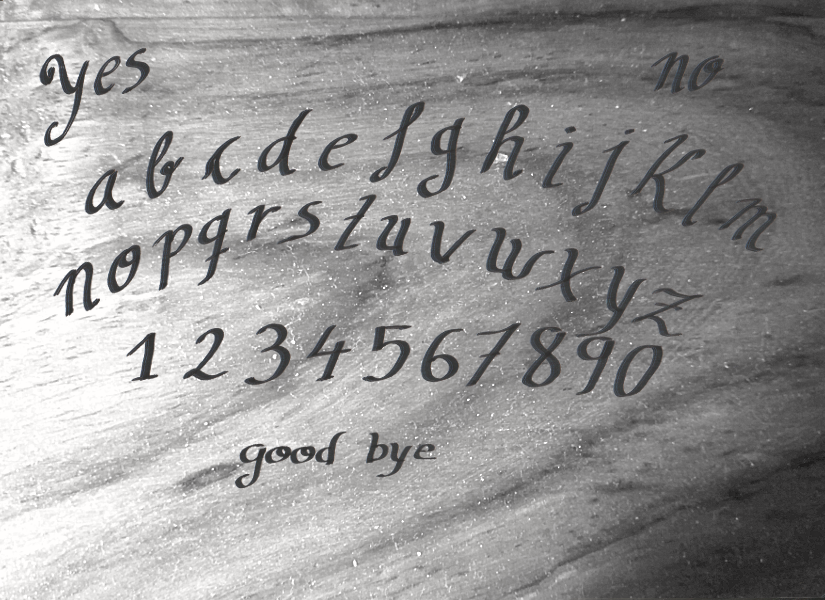 yes no
a b c d e f g h i j k l m
n o p q r s t u v w x y z
1 2 3 4 5 6 7 8 9 0
good bye